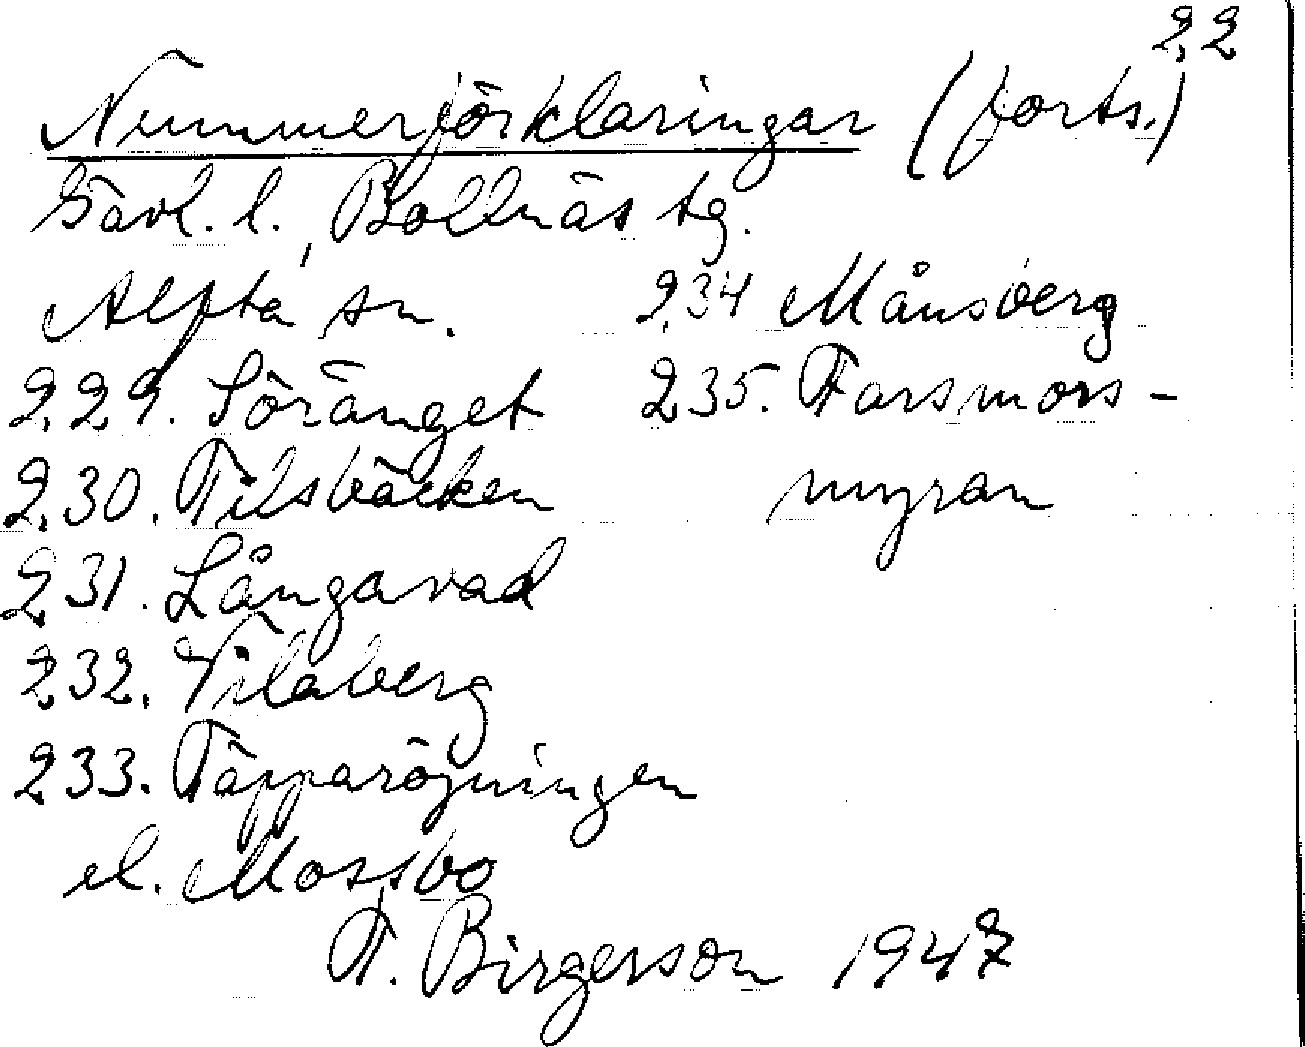 22
Nummerförklaringar (forts.)
Gävl. l., Bollnäs tg.
Alfta sn.
229. Söränget
230. Filsbäcken
231. Långavad
232. Vilaberg
233. Täpparöjningen
el. Mossbo
234 Månsberg
235. Farsmors-
myran
F. Birgerson 1947